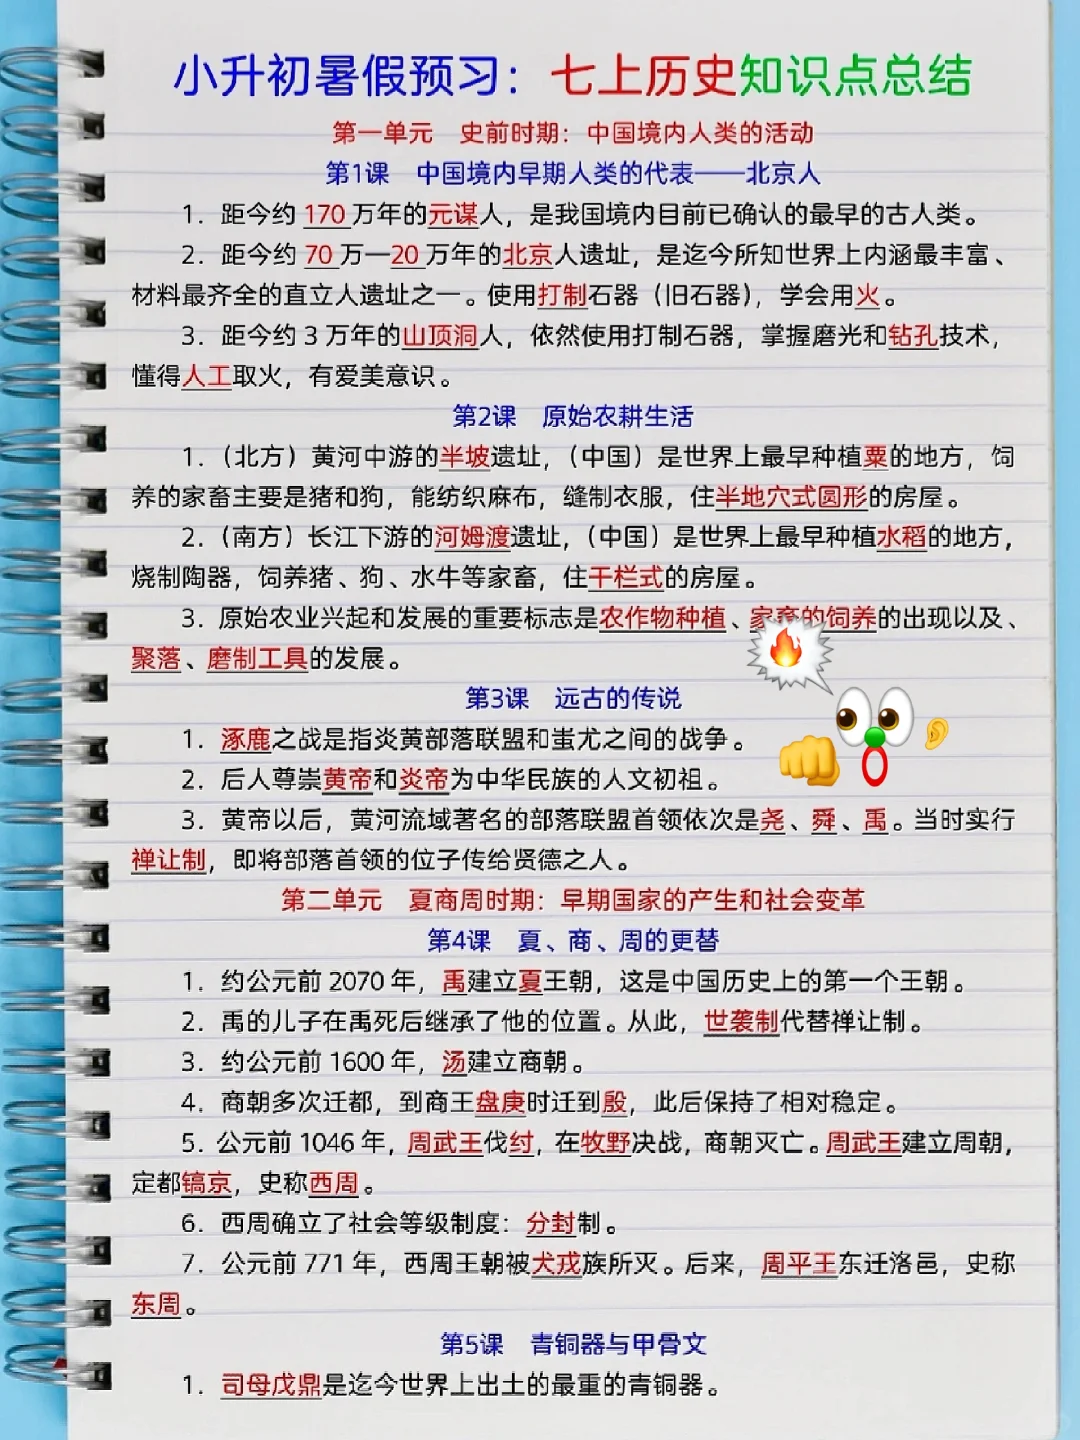 小升初暑假预习：七上历史知识点总结
第一单元 史前时期：中国境内人类的活动
第1课 中国境内早期人类的代表——北京人
1．距今约 170 万年的元谋人，是我国境内目前已确认的最早的古人类。
2．距今约 70 万—20 万年的北京人遗址，是迄今所知世界上内涵最丰富、
材料最齐全的直立人遗址之一。使用打制石器（旧石器），学会用火。
3．距今约 3 万年的山顶洞人，依然使用打制石器，掌握磨光和钻孔技术，
懂得人工取火，有爱美意识。
第2课 原始农耕生活
1．（北方）黄河中游的半坡遗址，（中国）是世界上最早种植粟的地方，饲
养的家畜主要是猪和狗，能纺织麻布，缝制衣服，住半地穴式圆形的房屋。
2．（南方）长江下游的河姆渡遗址，（中国）是世界上最早种植水稻的地方，
烧制陶器，饲养猪、狗、水牛等家畜，住干栏式的房屋。
3．原始农业兴起和发展的重要标志是农作物种植、家畜的饲养的出现以及、
聚落、磨制工具的发展。
第3课 远古的传说
1．涿鹿之战是指炎黄部落联盟和蚩尤之间的战争。
2．后人尊崇黄帝和炎帝为中华民族的人文初祖。
3．黄帝以后，黄河流域著名的部落联盟首领依次是尧、舜、禹。当时实行
禅让制，即将部落首领的位子传给贤德之人。
第二单元 夏商周时期：早期国家的产生和社会变革
第4课 夏、商、周的更替
1．约公元前 2070 年，禹建立夏王朝，这是中国历史上的第一个王朝。
2．禹的儿子在禹死后继承了他的位置。从此，世袭制代替禅让制。
3．约公元前 1600 年，汤建立商朝。
4．商朝多次迁都，到商王盘庚时迁到殷，此后保持了相对稳定。
5．公元前 1046 年，周武王伐纣，在牧野决战，商朝灭亡。周武王建立周朝，
定都镐京，史称西周。
6．西周确立了社会等级制度：分封制。
7．公元前 771 年，西周王朝被犬戎族所灭。后来，周平王东迁洛邑，史称
东周。
第5课 青铜器与甲骨文
1．司母戊鼎是迄今世界上出土的最重的青铜器。